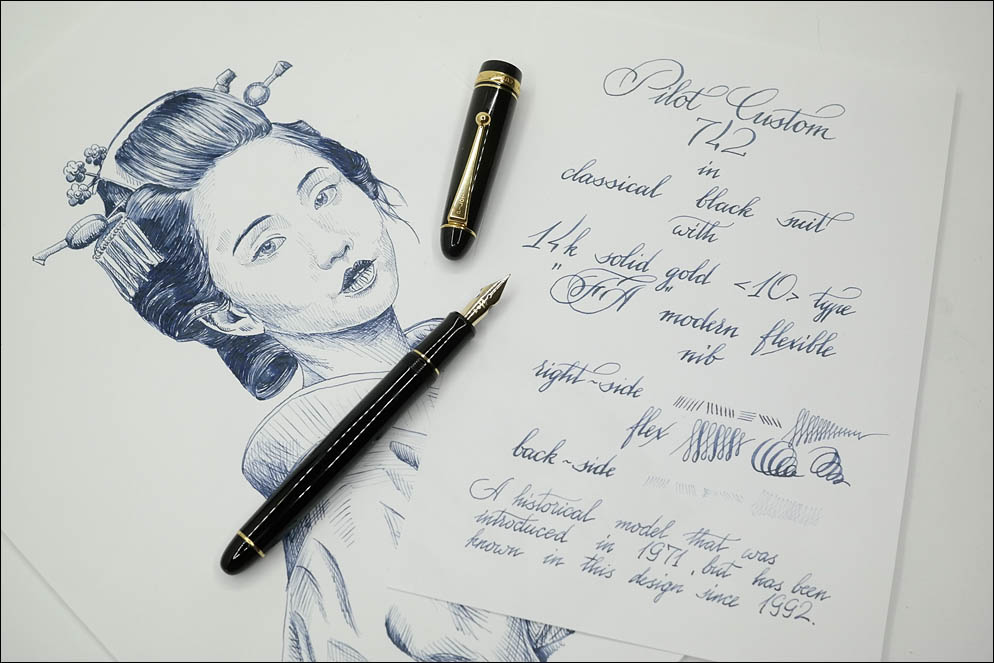 Pilot Custom
742
in
classical black suit
with
14k solid gold <10> type
"FA" modern flexible
nib
right~side
flex
back~side
A historical model that was
introduced in 1971, but has been
known in this design since 1992.